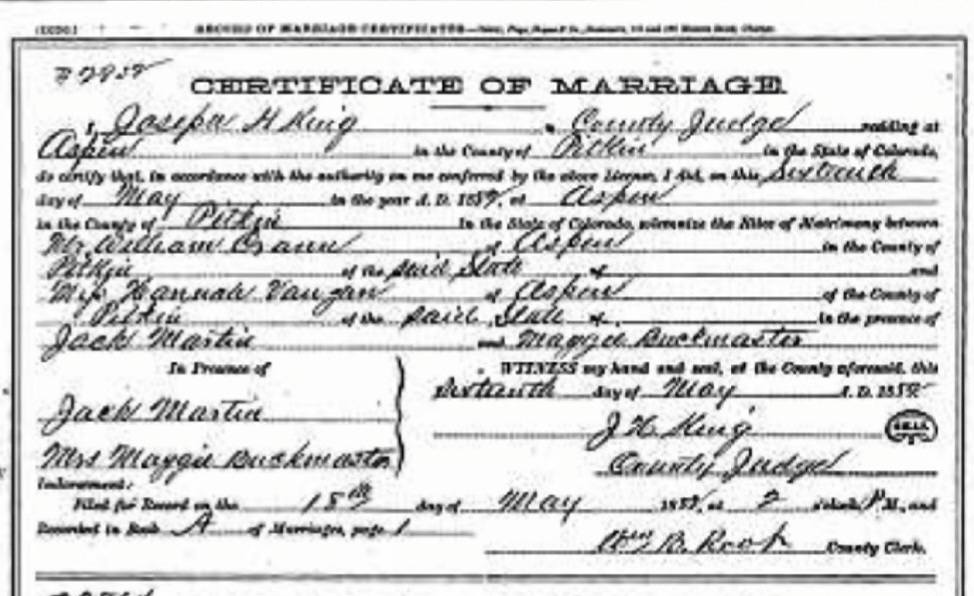 RECORD OF MARRIAGE CERTIFICATES
CERTIFICATE OF MARRIAGE
I, Joseph H King a County Judge residing at
Aspen in the County of Pitkin in the State of Colorado,
do certify that, in accordance with the authority on me conferred by the above License, I did, on this Sixteenth
day of May in the year A. D. 188 at Aspen
in the County of Pitkin in the State of Colorado, solemnize the Rites of Matrimony between
Mr. William Crann of Aspen in the County of
Pitkin of the said State of and
Miss Hannah Vaugan of Aspen of the County of
Pitkin of the said State of in the presence of
Jack Martin and Maggie Buckmaster
In Presence of WITNESS my hand and seal, at the County aforesaid, this
Sixteenth day of May A. D. 188
Jack Martin J H King SEAL
Mrs Maggie Buckmaster County Judge
Indorsement:
Filed for Record on the 18th day of May 188 at 2 o'clock P M., and
Recorded in Book A of Marriages, page 1
Wm B. Root County Clerk.